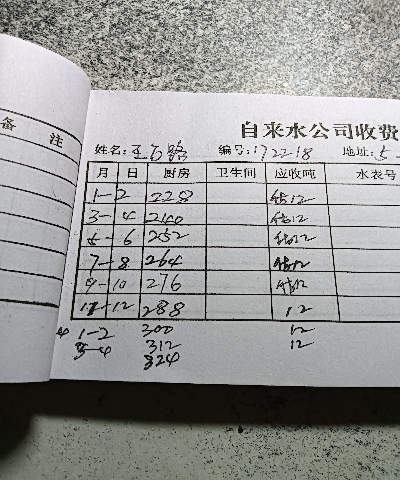 备 注
自来水公司收费
姓名: 王石路 编号: 172218 地址: 5-
月 日 厨房 卫生间 应收吨 水表号
1-2 228 12
3-4 240 12
5-6 252 12
7-8 264 12
9-10 276 12
11-12 288 12
1-2 300 12
3-4 312 12
324